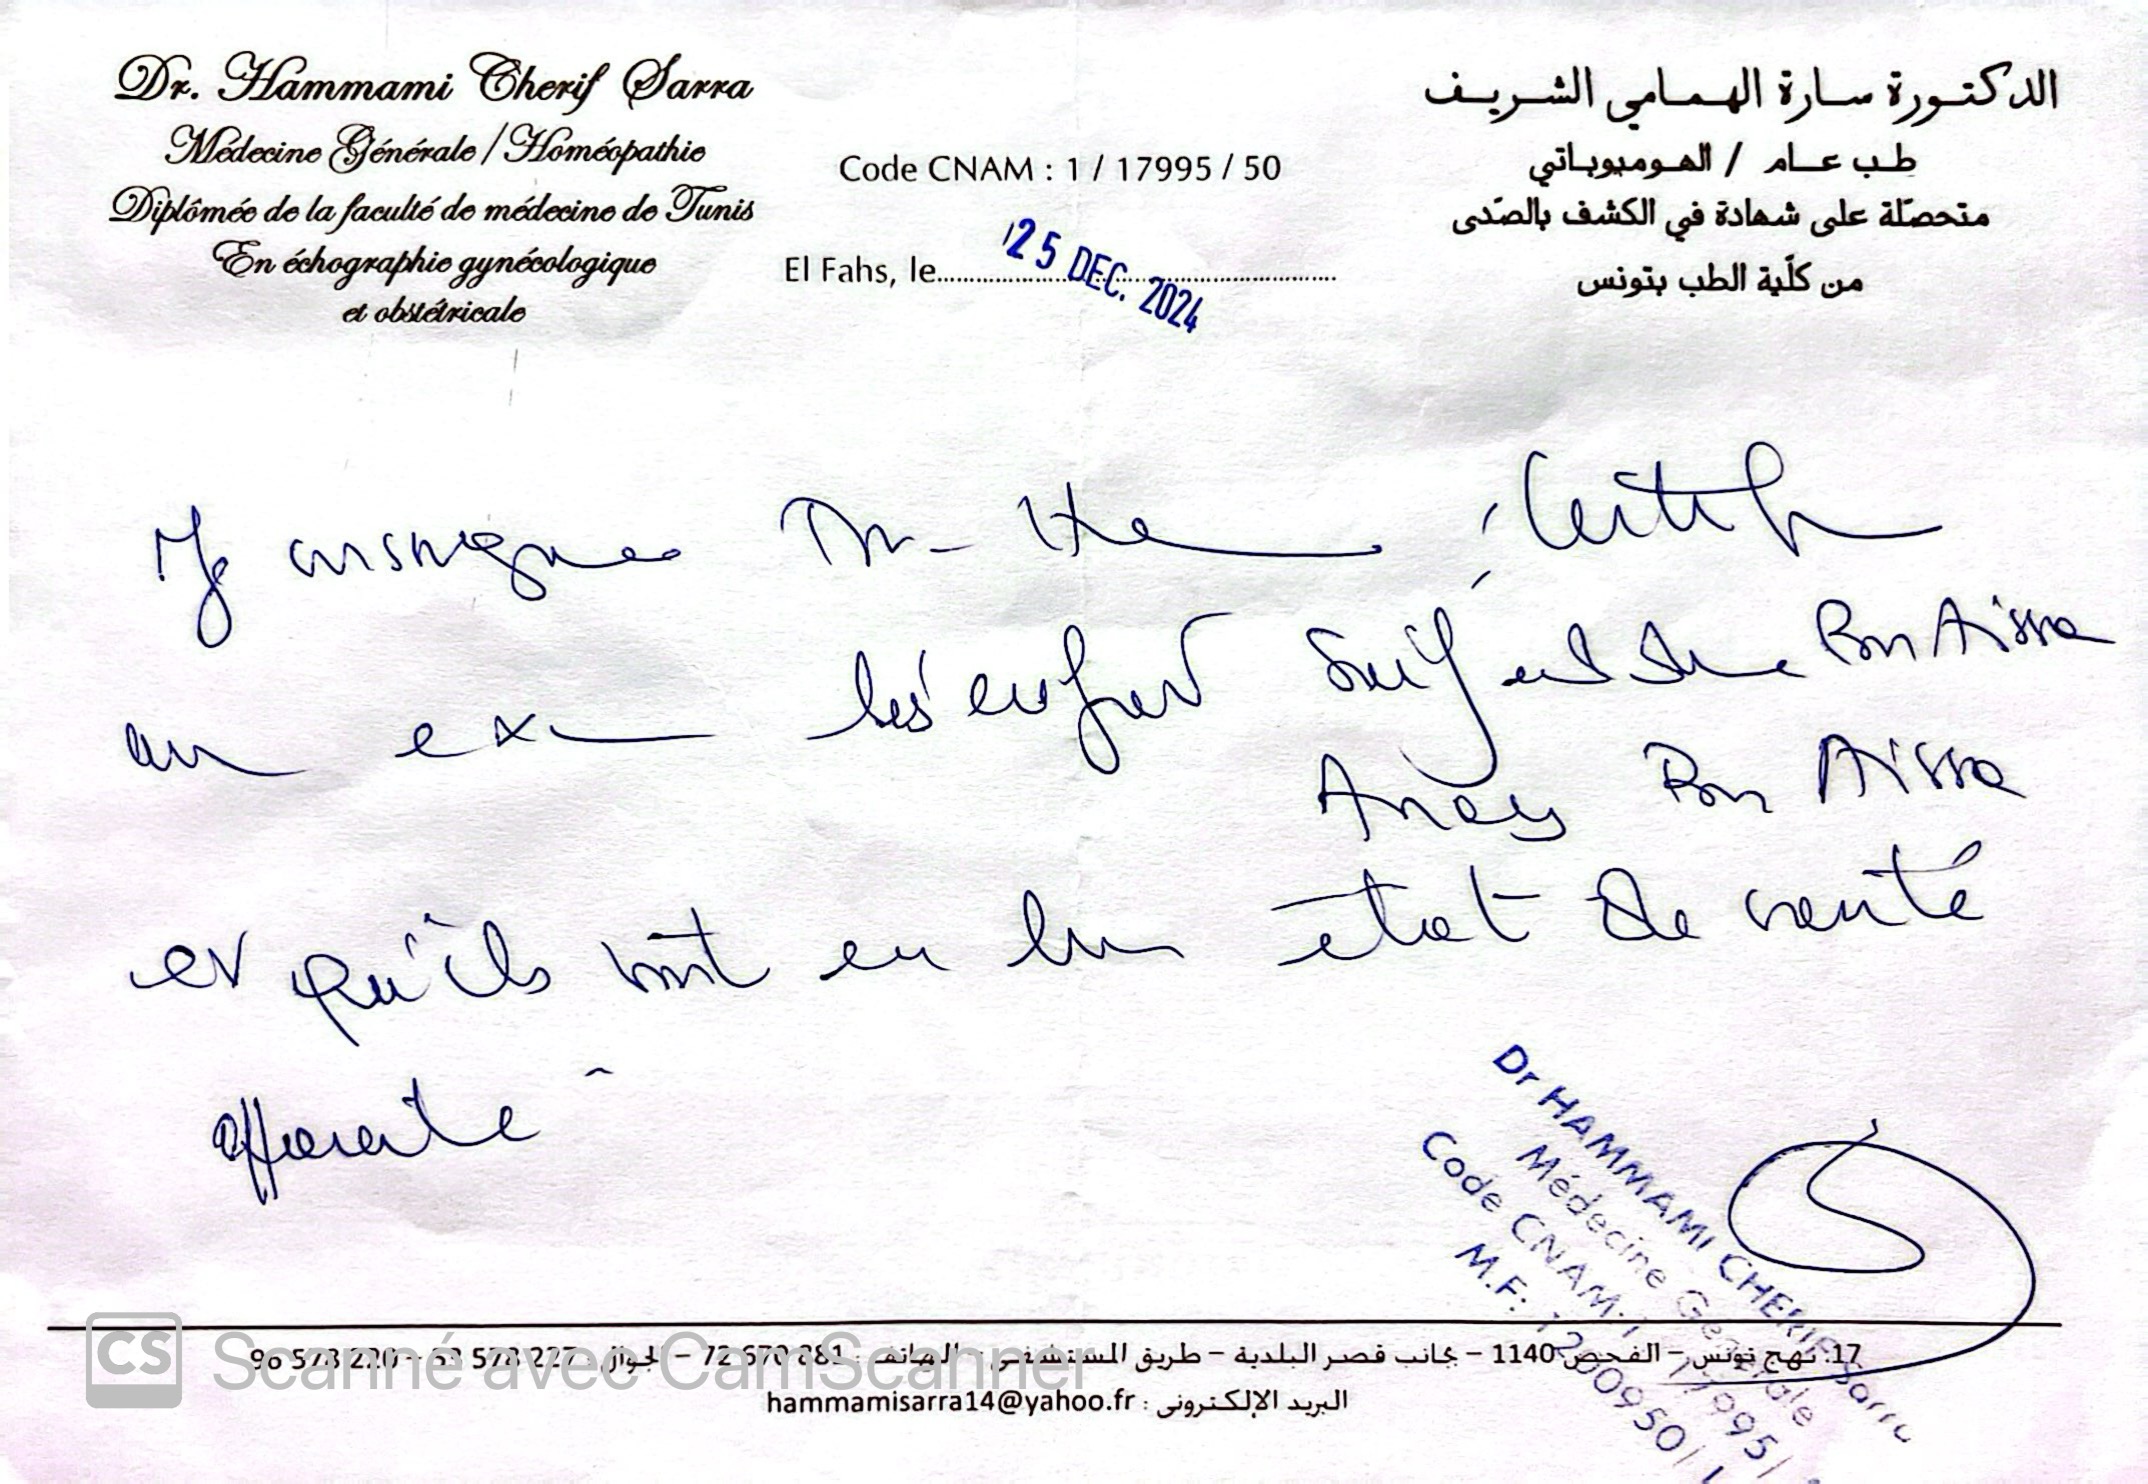 Dr. Hammami Cherif Sarra
Médecine Générale / Homéopathie
Diplômée de la faculté de médecine de Tunis
En échographie gynécologique
et obstétricale
Code CNAM : 1 / 17995 / 50
El Fahs, le
25 DEC. 2024
الدكتورة سارة الهمامي الشريف
طب عام / الهوميوباتي
متحصّلة على شهادة في الكشف بالصّدى
من كلّية الطب بتونس
les enfant Seif Ben Aissa
Anas Ben Aissa
et qu'ils sont en bon état de santé
apparente
Dr HAMMAMI CHERIF Sarra
Médecine Générale
Code CNAM: 1 / 17995 /
M.F:
17. نهج تونس – الفحص 1140 – بجانب قصر البلدية – طريق المستشفى – الهاتف : 72 670 881 – الجوال :
البريد الإلكتروني : hammamisarra14@yahoo.fr
CS Scanné avec CamScanner